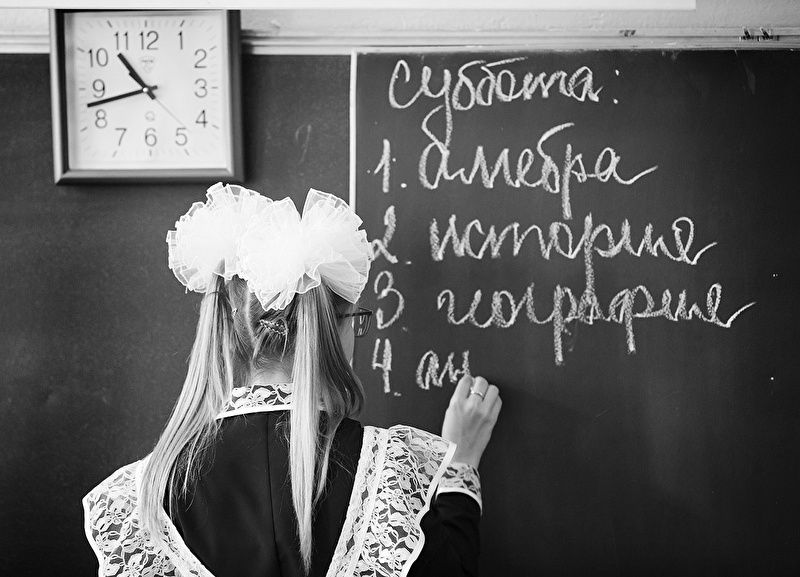 11 12 1
10 2
9 3
8 4
7 6 5
суббота:
1. алгебра
2. история
3. география
4. ан